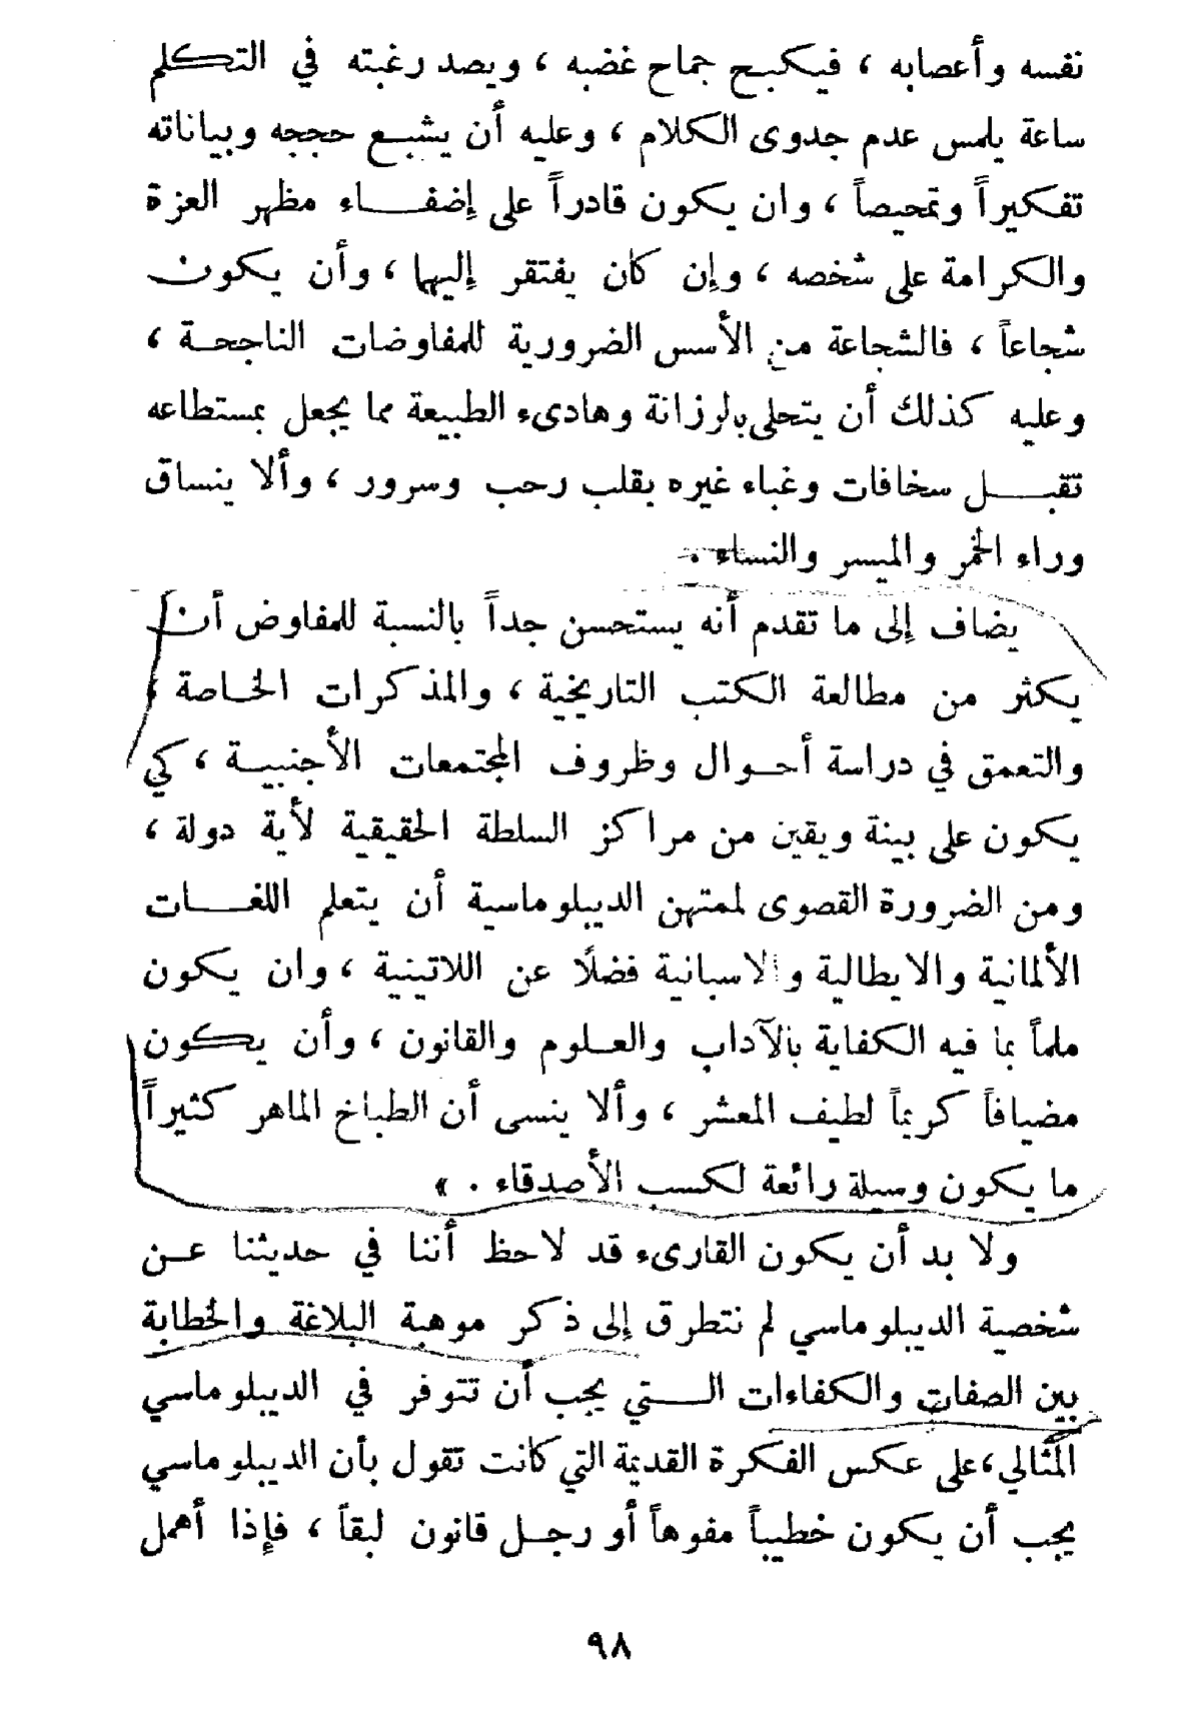 نفسه وأعصابه ، فيكبح جماح غضبه ، ويصد رغبته في التكلم
ساعة يلمس عدم جدوى الكلام ، وعليه أن يشبع حججه وبياناته
تفكيراً وتمحيصاً ، وان يكون قادراً على إضفاء مظهر العزة
والكرامة على شخصه ، وإن كان يفتقر إليها ، وأن يكون
شجاعاً ، فالشجاعة من الأسس الضرورية للمفاوضات الناجحة ،
وعليه كذلك أن يتحلى بالرزانة وهادىء الطبيعة مما يجعل بمستطاعه
تقبل سخافات وغباء غيره بقلب رحب وسرور ، وألا ينساق
وراء الخمر والميسر والنساء .
يضاف إلى ما تقدم أنه يستحسن جداً بالنسبة للمفاوض أن
يكثر من مطالعة الكتب التاريخية ، والمذكرات الخاصة ،
والتعمق في دراسة أحوال وظروف المجتمعات الأجنبية ، كي
يكون على بينة ويقين من مراكز السلطة الحقيقية لأية دولة ،
ومن الضرورة القصوى لممتهن الديبلوماسية أن يتعلم اللغات
الألمانية والايطالية والاسبانية فضلًا عن اللاتينية ، وان يكون
ملماً بما فيه الكفاية بالآداب والعلوم والقانون ، وأن يكون
مضيافاً كريماً لطيف المعشر ، وألا ينسى أن الطباخ الماهر كثيراً
ما يكون وسيلة رائعة لكسب الأصدقاء . »
ولا بد أن يكون القارىء قد لاحظ أننا في حديثنا عن
شخصية الديبلوماسي لم نتطرق إلى ذكر موهبة البلاغة والخطابة
بين الصفات والكفاءات التي يجب أن تتوفر في الديبلوماسي
المثالي ، على عكس الفكرة القديمة التي كانت تقول بأن الديبلوماسي
يجب أن يكون خطيباً مفوهاً أو رجل قانون لبقاً ، فإذا أهمل
٩٨